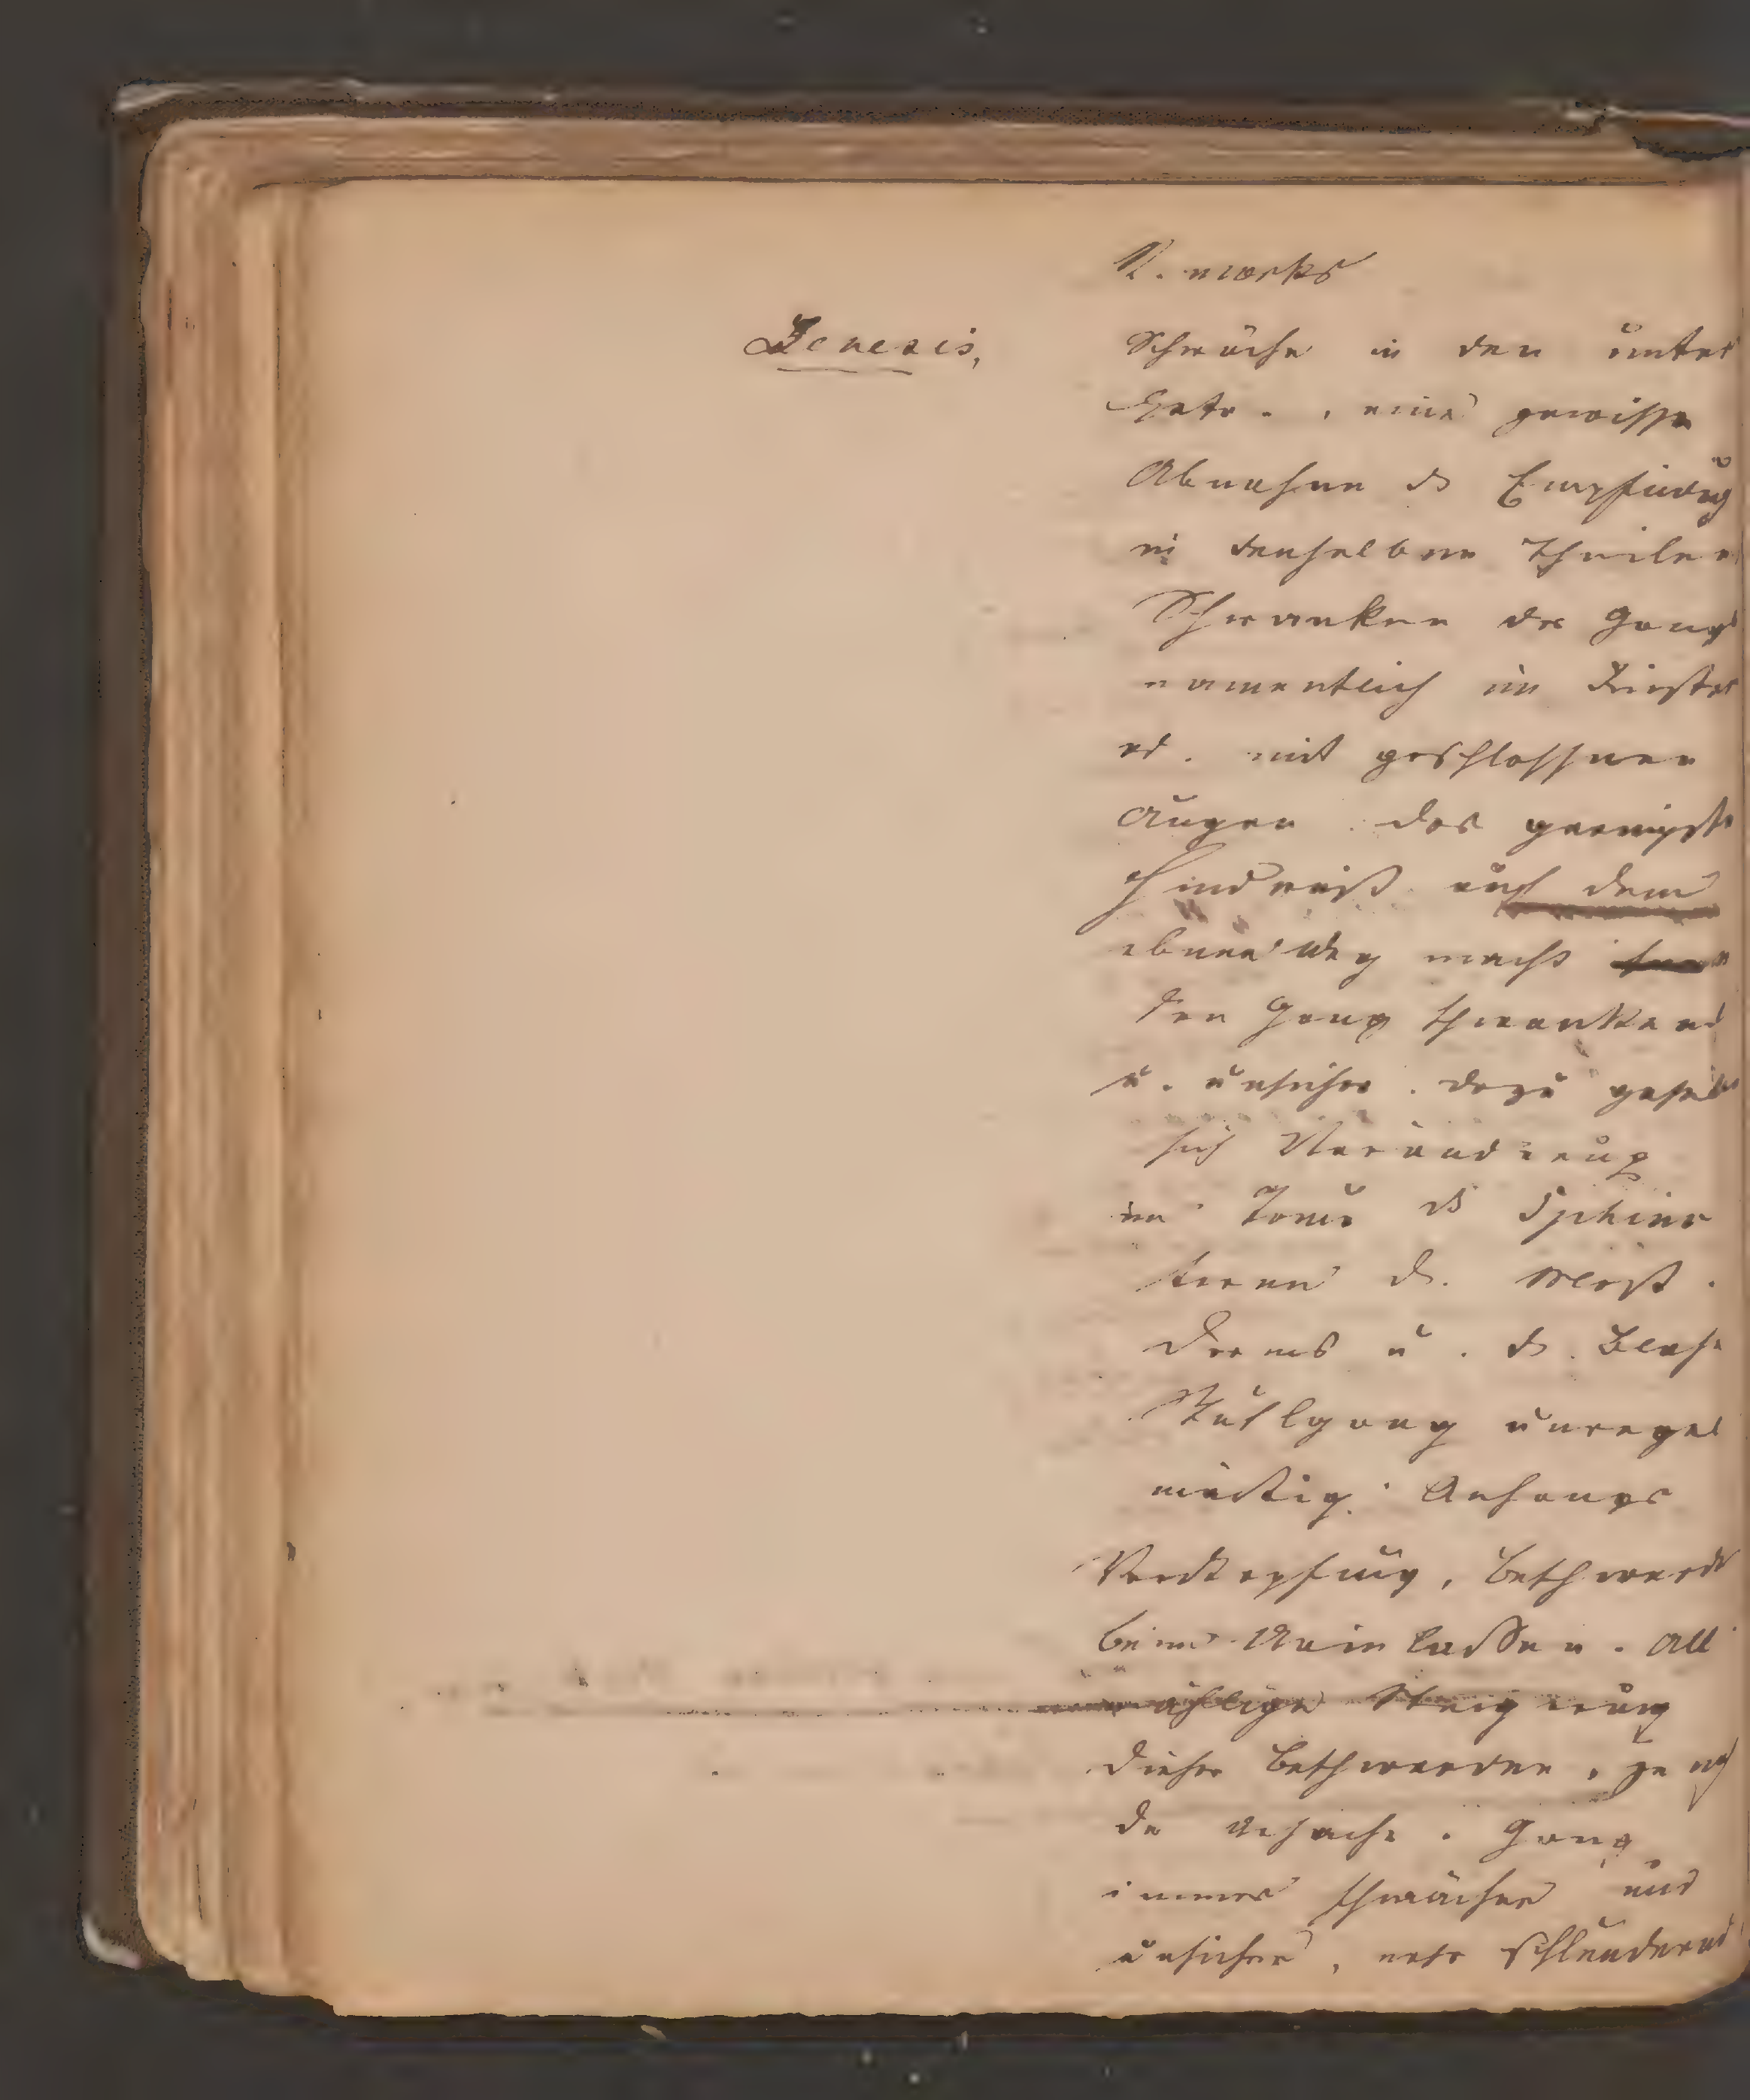 Genesis,
Schwäche in den unter
Extr., eine gewisse
Abnahme d Empfindug
in denselben Theilen
Schwanken des Gangs
namentlich im Finster
od. mit geschlossnen
Augen. das geringste
Hinderniß auf dem
ebnen Weg macht
den Gang schwankend
u. unsicher. dazu gesellt
sich Veränderung
im Tonus d Sphinc
teren d. Mast.
darms u. d. Blase
Stuhlgang unregel
mäßig. Anfangs
Verstopfung, Beschwerd
beim Urinlassen. All
mählige Steigerung
dieser Beschwerden, je nch
der Ursache. Gang
immer schwächer und
unsicher, mehr schleudernd